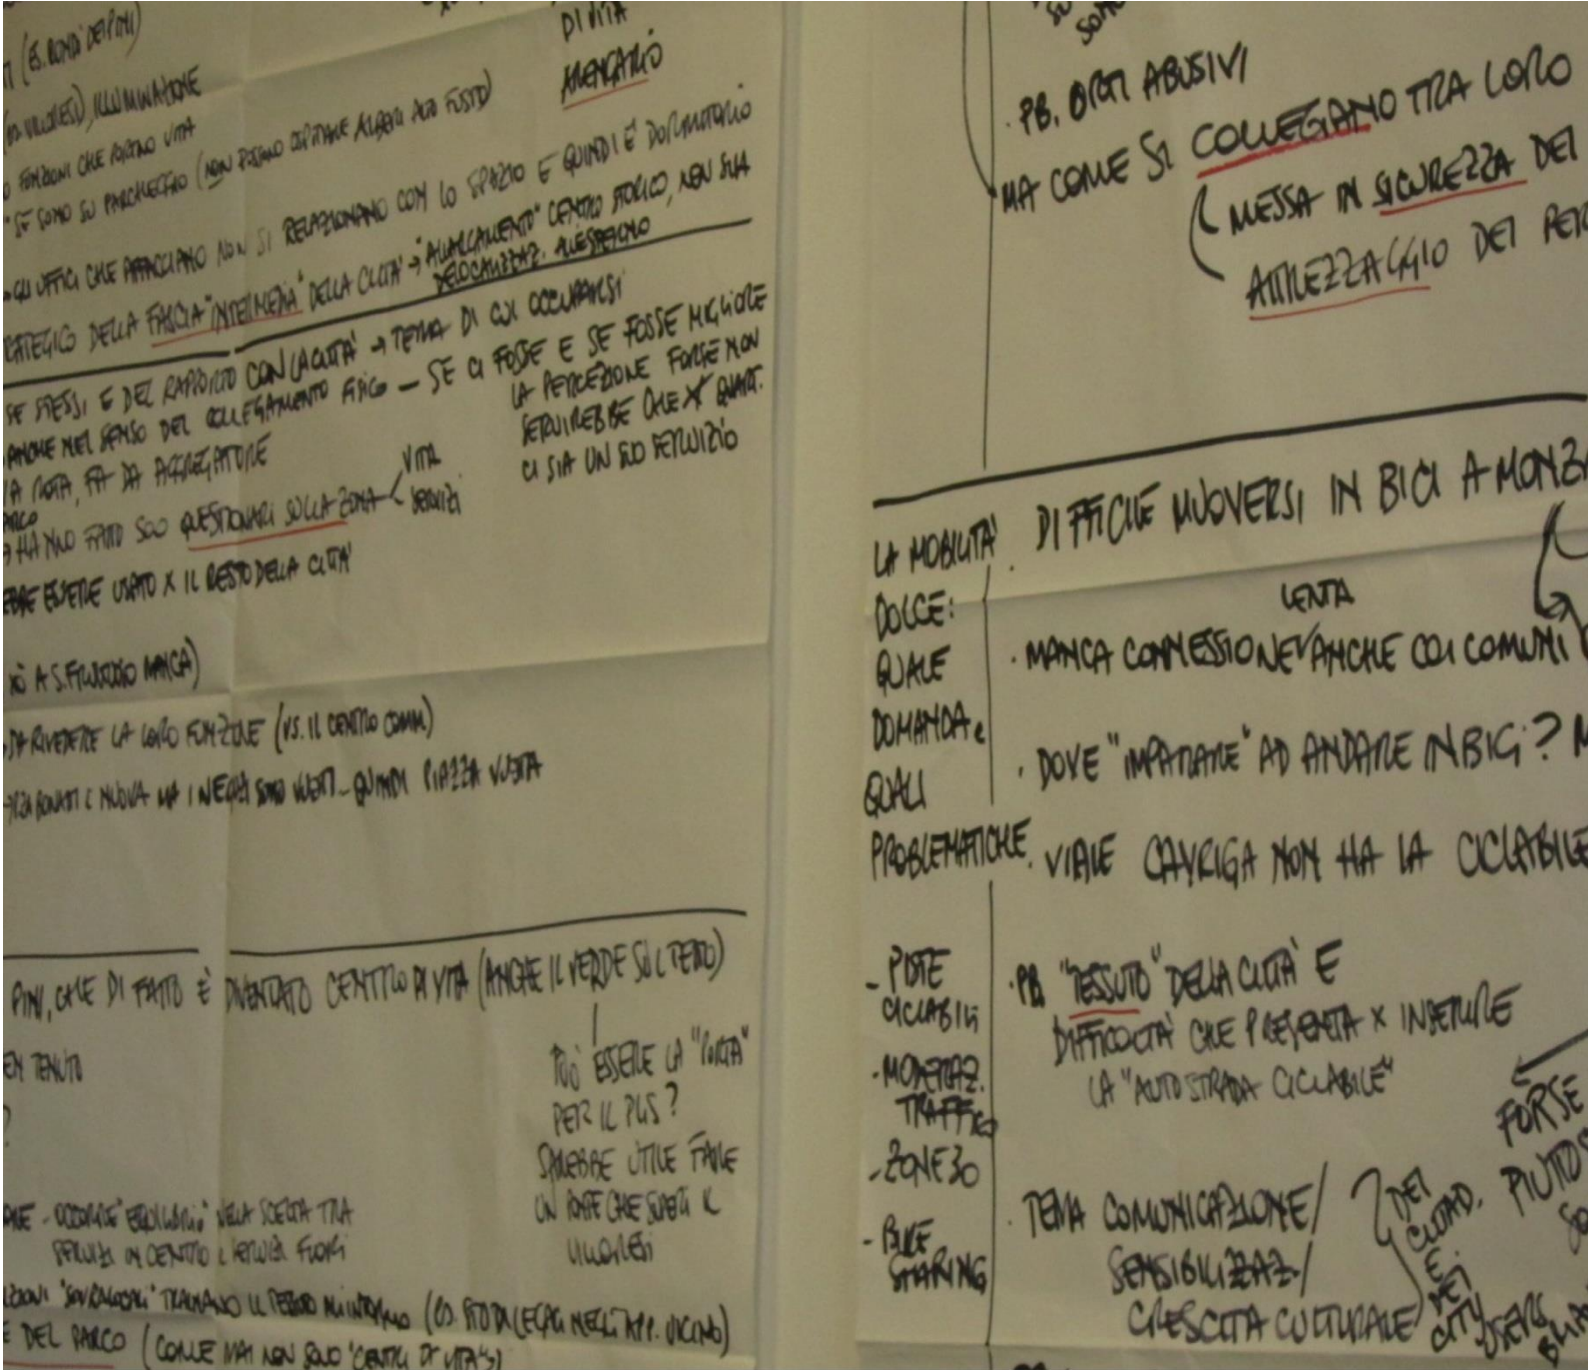 (ES. RONDÒ DEI PINI)
DI VITA
ARENGARIO
ILLUMINAZIONE
FUNZIONI CHE PORTINO VITA
"SE SONO SU PARCHEGGIO (NON POSSONO OSPITARE ALBERI ALTO FUSTO)
GLI UFFICI CHE AFFACCIANO NON SI RELAZIONANO CON LO SPAZIO E QUINDI È DORMITORIO
DELLA FASCIA "INTERMEDIA" DELLA CITTÀ → "ALLARGAMENTO" CENTRO STORICO, NON SUA
DELOCALIZZAZ. ALL'ESTERNO
SE STESSI E DEL RAPPORTO CON LA CITTÀ → TEMA DI CUI OCCUPARSI
ANCHE NEL SENSO DEL COLLEGAMENTO FISICO — SE CI FOSSE E SE FOSSE MIGLIORE
LA PERCEZIONE FORSE NON
SERVIREBBE CHE X QUART.
CI SIA UN SUO SERVIZIO
FA DA AGGREGATORE
PARCO
→ HANNO FATTO 500 QUESTIONARI SULLA ZONA
VITA
SERVIZI
ESSERE USATO X IL RESTO DELLA CITTÀ
A S. FRUTTUOSO MANCA)
DA RIVEDERE LA LORO FUNZIONE (VS. IL CENTRO COMM)
È NUOVA MA I NEGOZI SONO VUOTI - QUINDI PIAZZA VUOTA
PINI, CHE DI FATTO È DIVENTATO CENTRO DI VITA (ANCHE IL VERDE SUL TETTO)
PUÒ ESSERE LA "PORTA"
PER IL PLIS?
SAREBBE UTILE FARE
UN PONTE CHE SUPERI IL
VILLORESI
TENUTO
?
OCCORRE "EQUILIBRIO" NELLA SCELTA TRA
SERVIZI IN CENTRO E SERVIZI FUORI
"SOVRALOCALI" TRAINANO IL TESSUTO ALL'INTORNO
DEL PARCO (COME MAI NON SONO "CENTRI DI VITA"?)
. PB. ORTI ABUSIVI
MA COME SI COLLEGANO TRA LORO
MESSA IN SICUREZZA DEI
ATTREZZAGGIO DEI PER
LA MOBILITÀ
DOLCE:
QUALE
DOMANDA e
QUALI
PROBLEMATICHE.
- PISTE
CICLABILI
- MODERAZ.
TRAFFICO
- ZONE 30
- BIKE
SHARING
. DIFFICILE MUOVERSI IN BICI A MONZA
LENTA
. MANCA CONNESSIONE ANCHE COI COMUNI
. DOVE "IMPARARE" AD ANDARE IN BICI?
. VIALE CAVRIGA NON HA LA CICLABILE
. PB "TESSUTO" DELLA CITTÀ E
DIFFICOLTÀ CHE PRESENTA X INSERIRE
LA "AUTOSTRADA CICLABILE"
FORSE
. TEMA COMUNICAZIONE/
SENSIBILIZZAZ./
CRESCITA CULTURALE
DEI
CITTAD.
E DEI
CITY
USERS